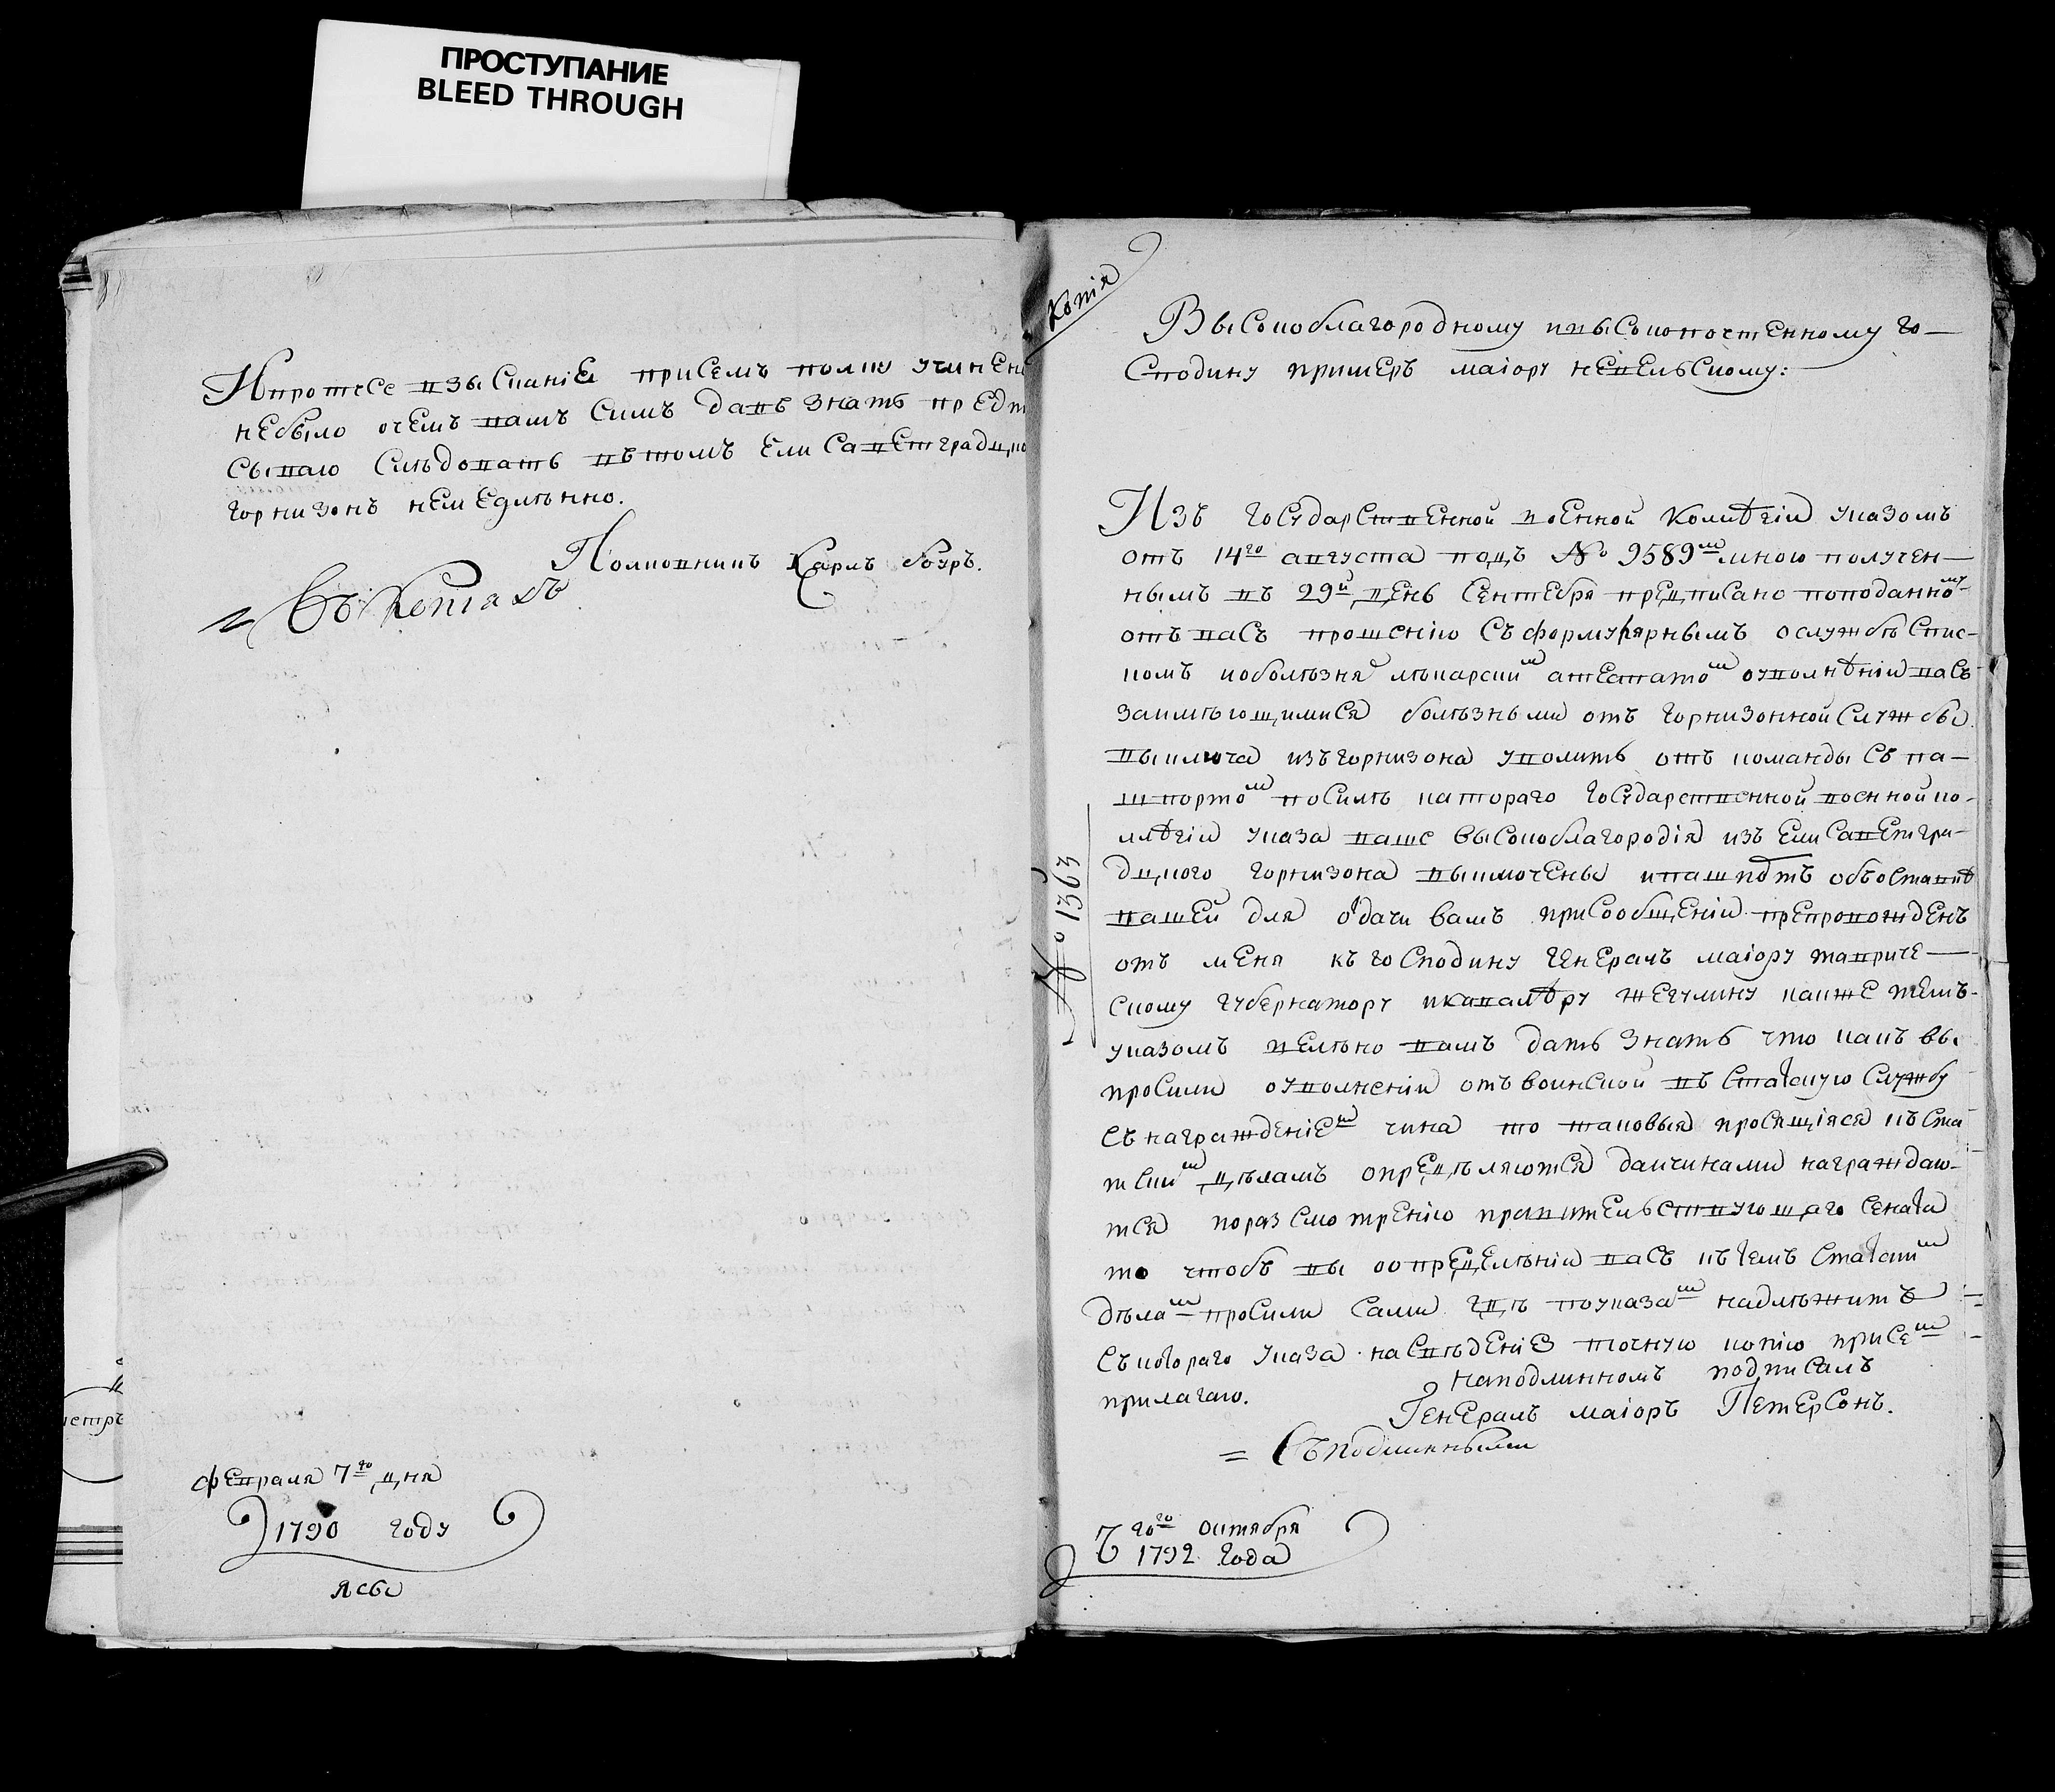 ПРОСТУПАНИЕ
BLEED THROUGH
И протчее взысканіе при семъ полку учинен
небыло очемъ вамъ симъ давъ знать предп
сываю следовать въ томъ Елисаветградцко
горнизонъ немедлѣнно.
Полковникъ Карлъ Боуръ.
Съ Копіа въ
февраля 7го дня
1790 году
Ясы
Копія
Высокоблагородному ивысокопочтенному го-
сподину примеръ маіору невельскому:
Изъ государственной военной колѣгіи указомъ
отъ 14го августа подъ № 9589м мною получен-
нымъ въ 29й день Сентебря предписано поподанному
отъ васъ прошенію съ формулярнымъ ослужбѣ спис-
комъ поболѣзня лѣкарским атестатом оуволнѣніи васъ
заимѣющимися болѣзньми отъ горнизонной службы
выключа изъ горнизона уволить отъ команды съ па-
шпортом посилѣ катораго государственной военной ко-
лѣгіи указа ваше высокоблагородія изъ Елисаветгра-
дцкого горнизона выключены
вашей для одачи вамъ присообщеніи препровожденъ
отъ меня къ господину генералъ маіору тавриче-
скому губернатору икавалѣру жегулину какже темъ-
указомъ велѣно вамъ дать знать что какъ вы
просили оуволненіи отъ воинской въ статскую службу
съ награжденіем чина то таковыя просящіяся къ ста
тским дѣламъ опредѣляются даичинами награждаю-
тся поразсмотренію правительствующаго сената
то чтобъ вы оопредѣленіи васъ къ тем статским
дѣлам просили сами гдѣ поуказам надлѣжитъ
съ которого указа насвѣденіе точную копію присем
прилагаю.
наподлинномъ подписалъ
Генералъ маіоръ Петерсонъ.
Съ подлиннымъ
№ 1363
7 гого октября
1792 года